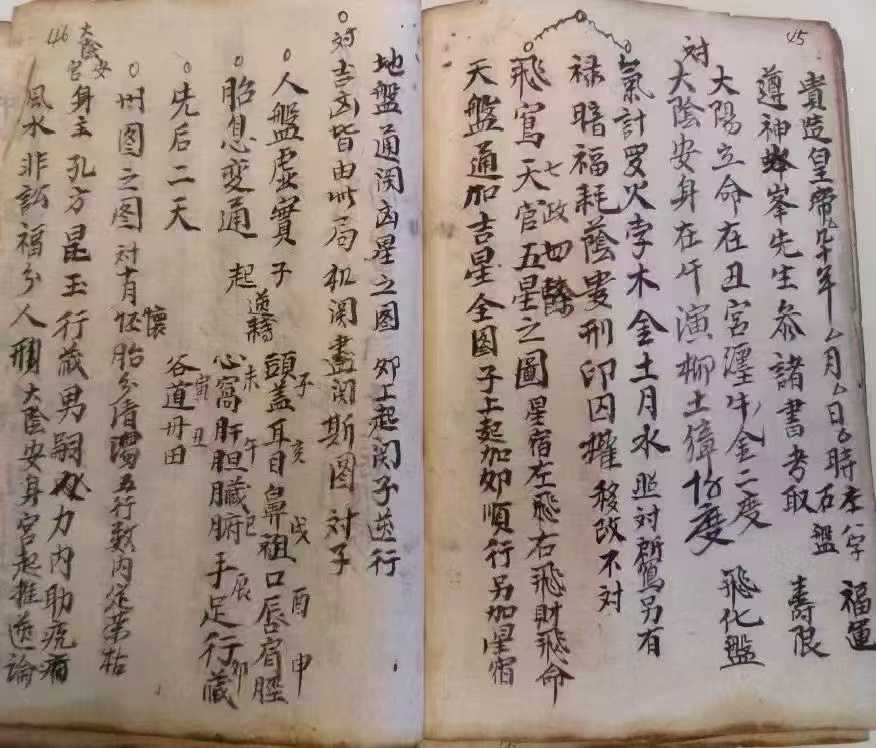 45
貴造皇帝九十年厶月厶日厶時 左盤 八字 福運
遵神峰先生參諸書考取 壽限
大陽立命在丑宮躔牛金二度 飛化盤
対
大陰安身在午 演柳土獐 度
氣計羅火孛木金土月水 照对 另有
禄暗福耗蔭貴刑印囚權 移改不对
飛寫天官五星之圖 星宿左飛右飛財飛命
七政四餘
天盤通加吉星全图子上起加卯順行另加星宿
地盤通関凶星之图 卯上起関子送行
対吉凶皆由此局机関盡関斯图 対子
人盤虚實 子 頭蓋耳目鼻祖口唇肩脛
子亥戌酉申
胎息変通 起 心窩肝胆臟腑手足行藏
未午巳辰卯
寅丑
先后二天 谷道丹田
州图之图 対有怀胎分清濁五行数内定荣枯
懷
身主孔方昆玉行藏男嗣 力内助疣痛
大陰安宮
風水非訟福分人刑 大陰安身宮起推送論
46